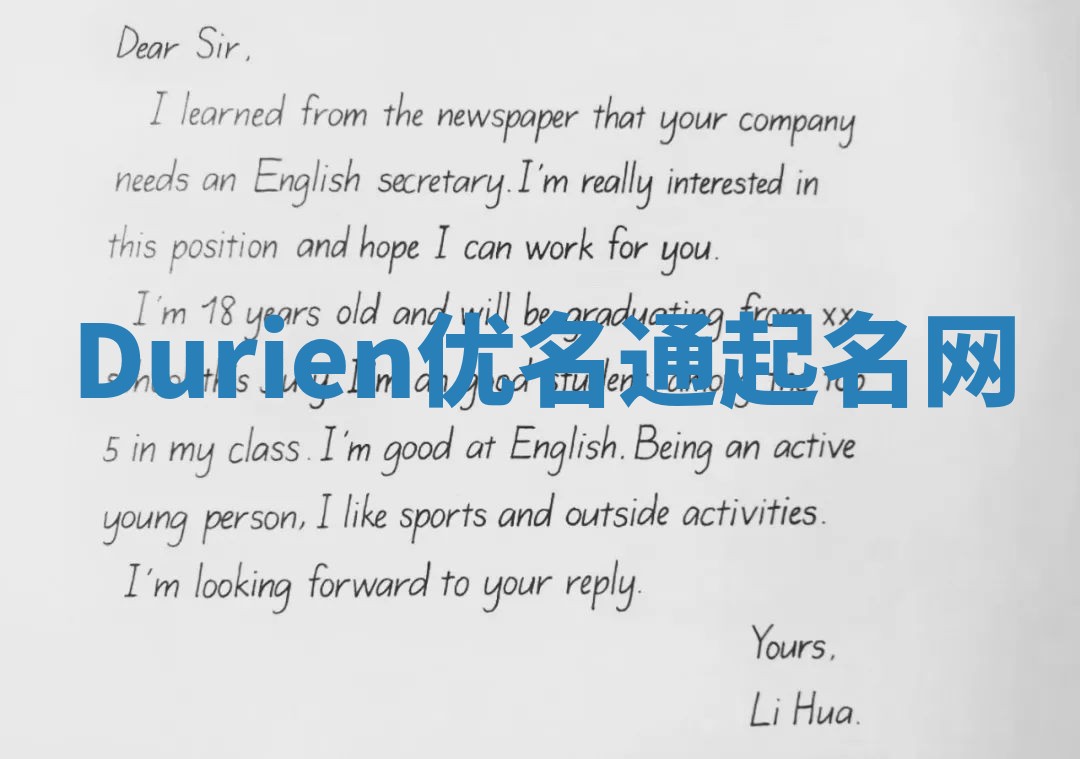 Dear Sir,
I learned from the newspaper that your company
needs an English secretary. I'm really interested in
this position and hope I can work for you.
I'm 18 years old and will be graduating from xx
Durien优名通起名网
this July. I'm an good student among the top
5 in my class. I'm good at English. Being an active
young person, I like sports and outside activities.
I'm looking forward to your reply.
Yours,
Li Hua.